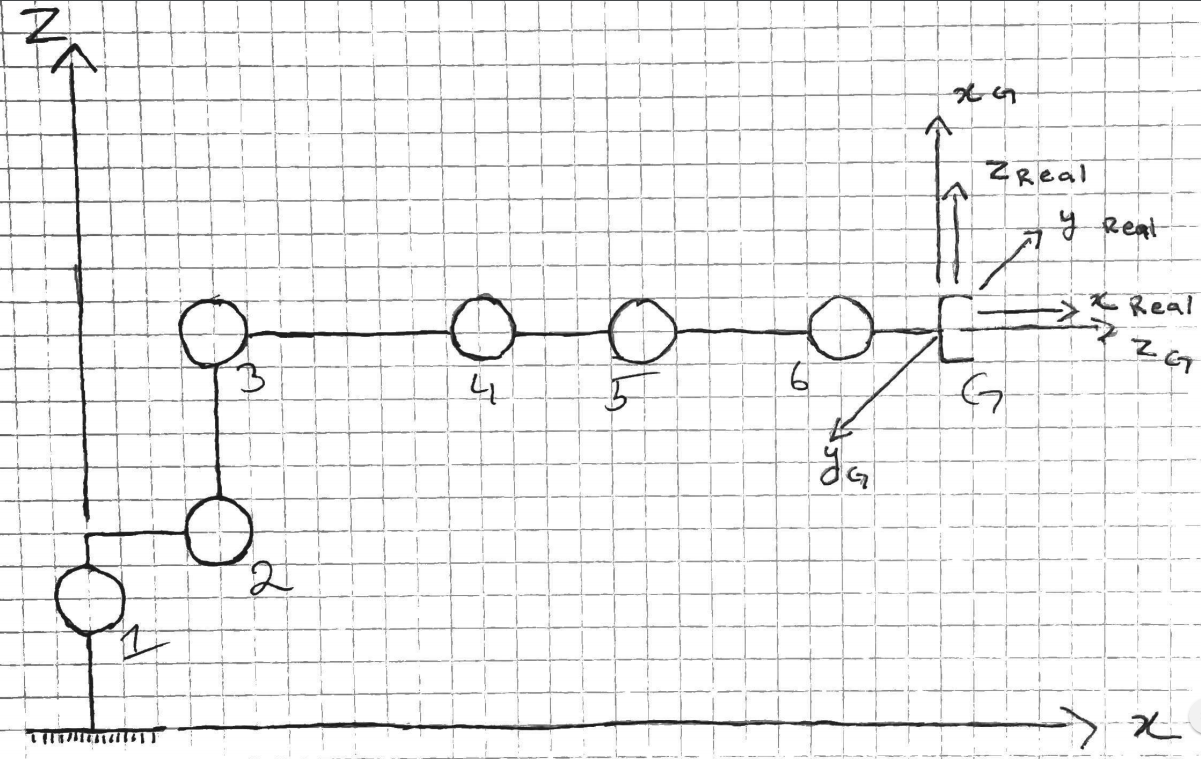 Z
x G
Z Real
y Real
x Real
z G
3
4
5
6
G
y G
2
1
x